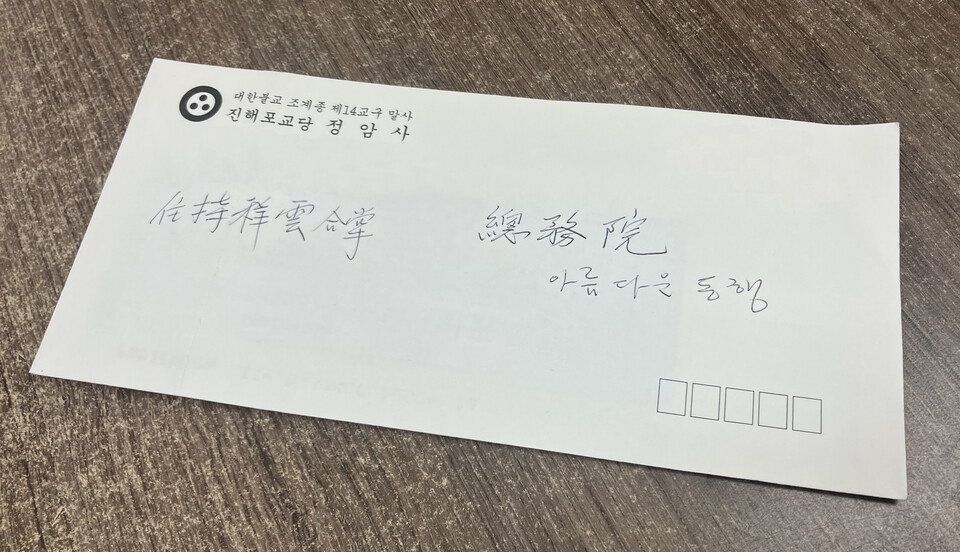 대한불교 조계종 제14교구 말사
진해포교당 정암사
住持祥雲合掌
總務院
아름다운 동행